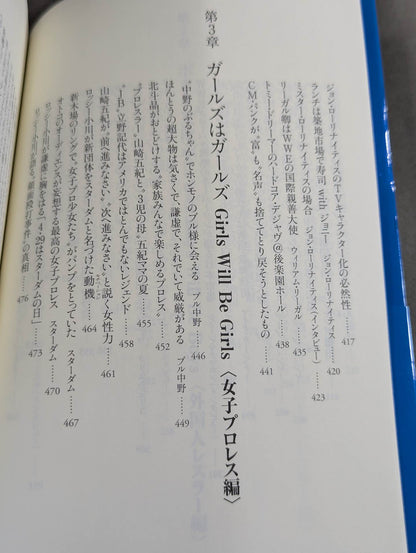 ジョン・ローリナイティスのTVキャラクター化の必然性 …… 417
ランチは築地市場で寿司 with ジョニー ジョン・ローリナイティス …… 420
ミスター・ローリナイティスの場合 ジョン・ローリナイティス〈インタビュー〉 …… 423
リーガル卿はWWEの国際親善大使 ウィリアム・リーガル …… 435
トミー・ドリーマーのハードコア・デジャヴ@後楽園ホール …… 438
CMパンクが“富”も“名声”も捨ててとり戻そうとしたもの …… 441
第3章 ガールズはガールズ Girls Will Be Girls〈女子プロレス編〉
“中野のぶるちゃん”でホンモノのブル様に会える ブル中野 …… 446
ほんとうの超大物は気さくで、謙虚で、それでいて威厳がある ブル中野 …… 449
北斗晶がおとどけする“家族みんなで楽しめるプロレス” …… 452
“プロレスラー”山崎五紀と“3児の母”五紀ママの夏 …… 455
“JB”立野記代はアメリカではとんでもないレジェンド …… 458
山崎五紀が“前へ進みなさい”“次へ進みなさい”と説く“女性力” …… 461
ロッシー小川が新団体をスターダムと名づけた動機 …… 464
新木場のリングで“女子プロ少女たち”がバンプをとっていた スターダム …… 467
オトコのオーディエンスが妄想する最高の女子プロレス スターダム …… 470
ロッシー小川が謙虚に胸をはる“4・29はスターダムの日” …… 473
ロッシー小川が語る“顔面殴打事件”の真相 …… 476